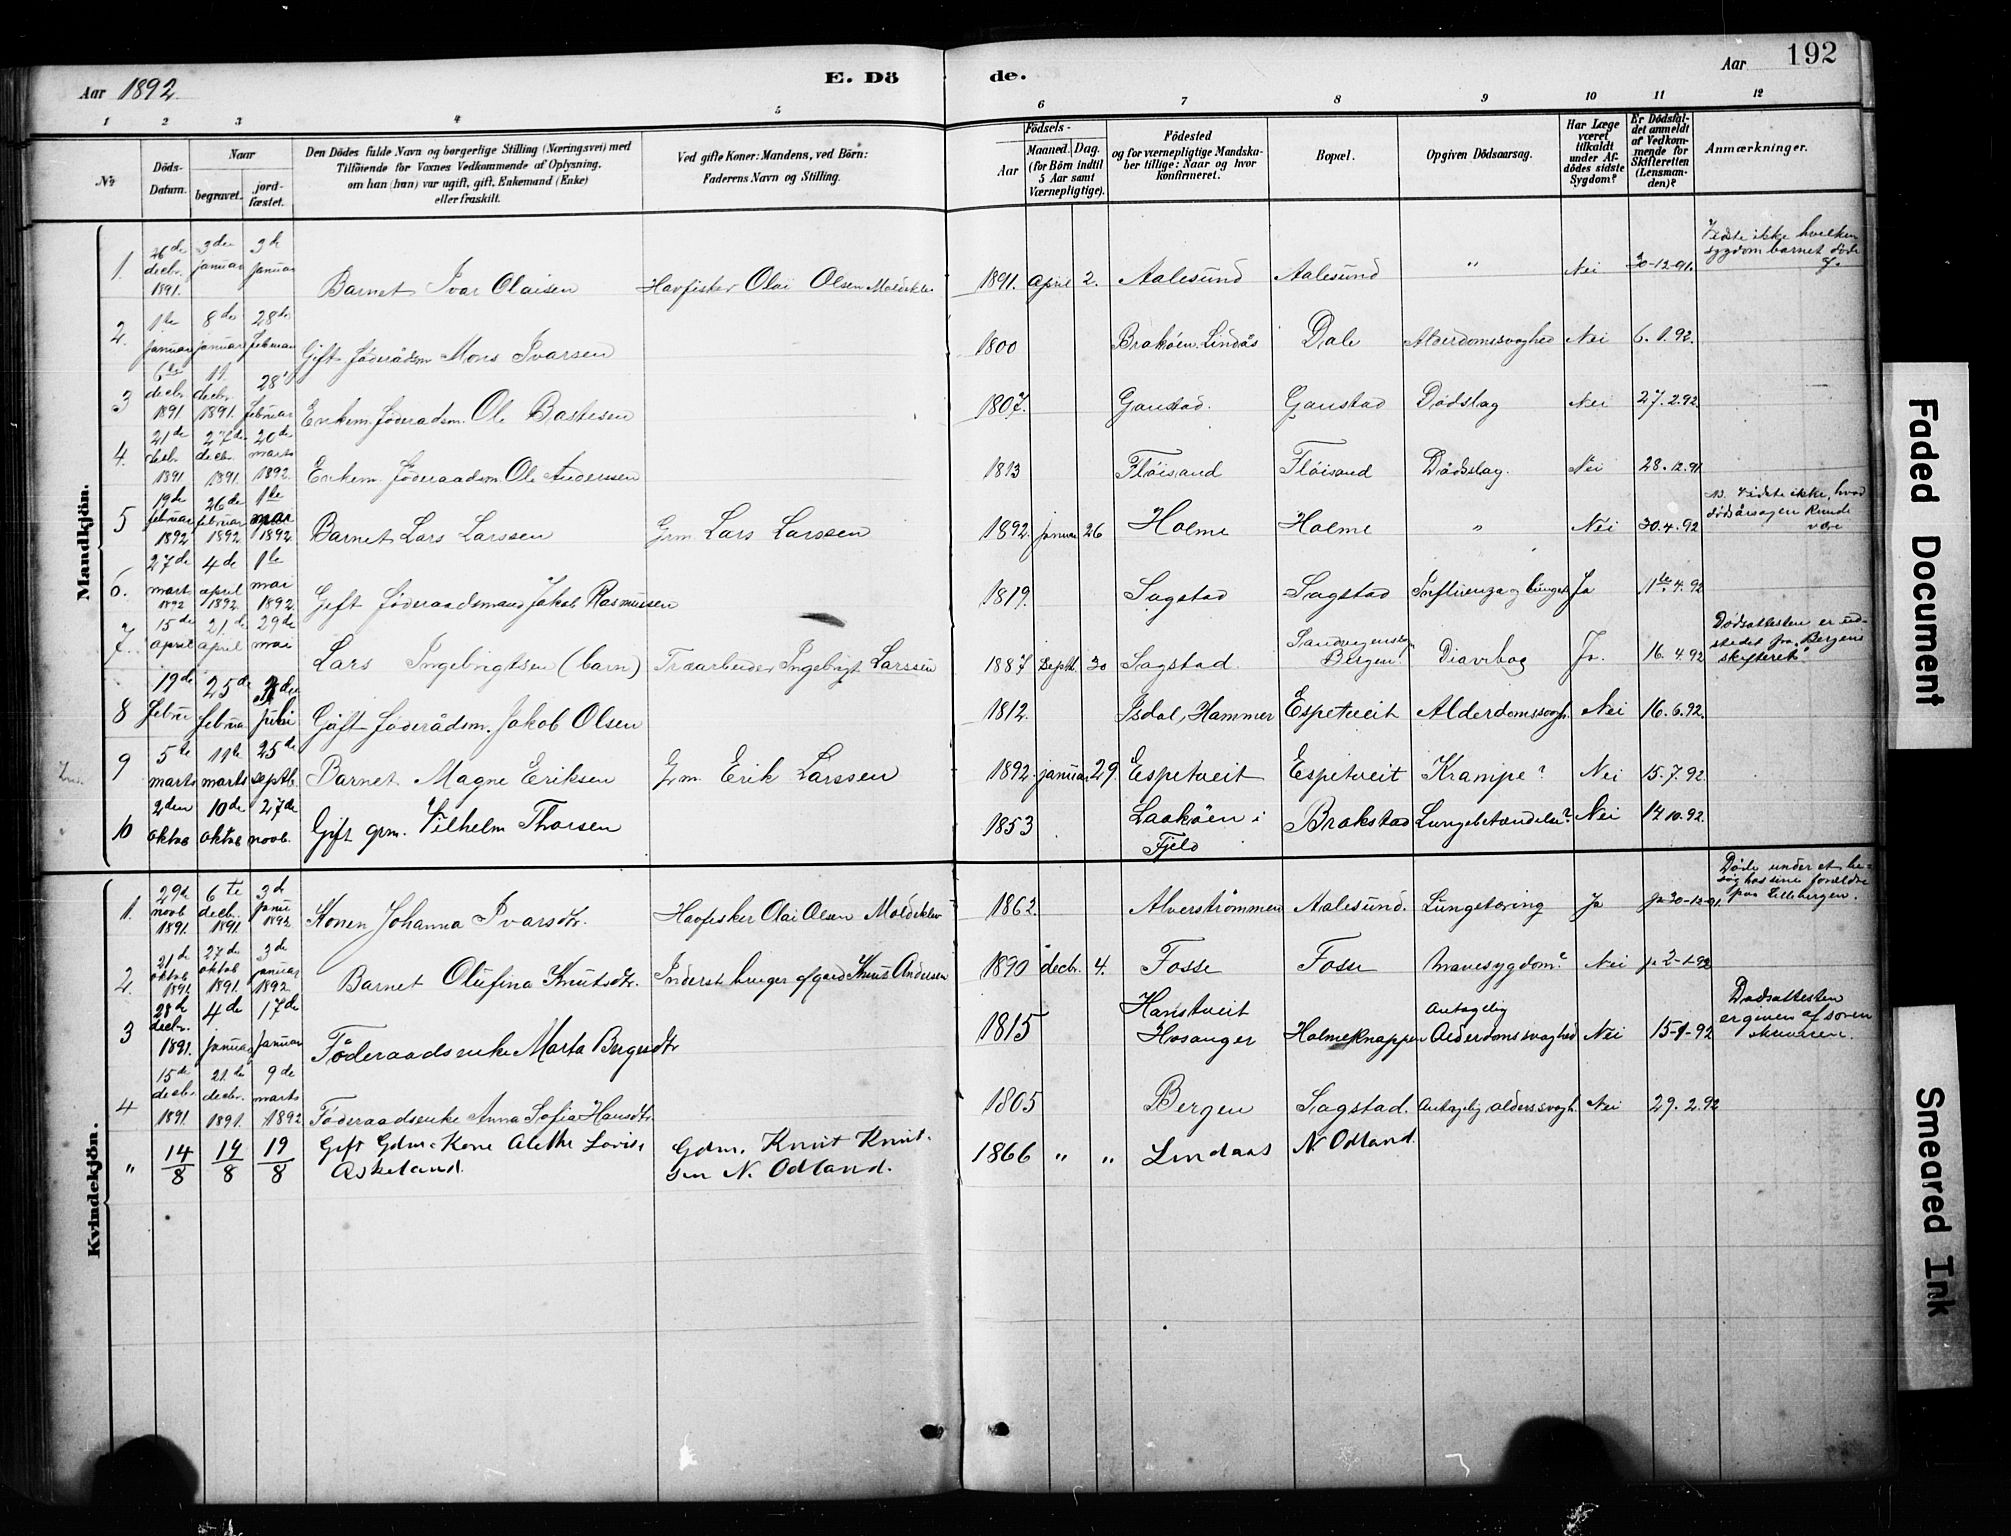 Aar 1892.
E. Dö
de.
Aar 192
1 2 3 4 5 6 7 8 9 10 11 12
No.
Döds-Datum.
Naar
begravet.
jordfæstet.
Den Dödes fulde Navn og borgerlige Stilling (Næringsvei) med
Tilföiende for Voxnes Vedkommende af Oplysning,
om han (hun) var ugift, gift, Enkemand (Enke)
eller fraskilt.
Ved gifte Koner: Mandens, ved Börn:
Faderens Navn og Stilling.
Födsels-
Aar
Maaned. Dag.
(for Börn indtil
5 Aar samt
Værnepligtige).
Födested
og for værnepligtige Mandska-
ber tillige: Naar og hvor
konfirmeret.
Bopæl.
Opgiven Dödsaarsag.
Har Læge
været
tilkaldt
under Af-
dödes sidste
Sygdom?
Er Dödsfal-
det anmeldt
af Vedkom-
mende for
Skifteretten
(Lensman-
den)?
Anmærkninger.
Mandkjön.
1. 26de decbr. 1891. 3die januar 3de januar Barnet Ivar Olaisen Havfisker Olai Olsen Moldeklev 1891. april 2. Aalesund Aalesund " Nei 30-12-91. Vidste ikke hvilken
sygdom barnet döde
2. 1te januar 8de januar 28de februar Gift föderådsm. Mons Ivarsen 1800 Braköen Lindås Dale Alderdomssvaghed Nei 6.1.92.
3 6te decbr 1891 11 decbr 1891. 28de februar Enkem. föderadsm. Ole Bastesen 1807. Ganstad. Ganstad Dödslag Nei 27.2.92.
4. 21de decbr 1891 27de decbr. 1891. 20de marts 1892. Enkem. föderaadsm. Ole Anderssen 1813 Flöisand Flöisand Dödslag. Nei 28.12.91
5 19de februar 1892 26de februar 1892 1te mai 1892. Barnet Lars Larssen Grm Lars Larssen 1892. januar 26 Holme Holme " Nei 30.4.92 Vidste ikke, hvad
dödsårsagen kunde
være
6. 27de marts 1892 4de april 1892. 1te mai 1892. Gift föderaadsmand Jakob Rasmussen 1819. Sagstad Sagstad Influenza og lunget. Ja 11te.4.92
7. 15de april 21de april 29de mai Lars Ingebrigtsen (barn) Træarbeider Ingebrigt Larssen 1887 septb 30 Sagstad. Bergen Ja. 16.4.92 Dödsattesten er ud-
stedet fra "Bergens
skifteret".
8 19de februar 25de februar juli Gift föderådsm. Jakob Olsen 1812. Isdal, Hammer Espetveit Alderdomssvagh. Nei 16.6.92.
9 5te marts 11te marts 25de septb. Barnet Magne Eriksen Grm. Erik Larssen 1892. januar 29. Espetveit Espetveit Krampe? Nei 15.7.92
10 2den oktob 10de oktob 27de novb. Gift grm. Vilhelm Thorsen 1853 Laaköen i
Fjeld Brakstad Lungebetændelse? Nei 14.10.92.
Kvindekjön.
1. 29de novb 1891. 6te decbr. 1891 3de januar 1892 Konen Johanna Ivarsdtr. Havfisker Olai Olsen Moldeklev 1862. Alverströmmen Aalesund. Lungetæring Ja 30-12-91. Döde under et be-
sög hos sine forældre
paa Lillebergen.
2. 21de oktob 1891 27de oktob 1891. 3de januar 1892 Barnet Olufina Knutsdtr. Inderst bruger af gård Knut Andersen 1890 decbr. 4. Fosse Fosse Mavesygdom? Nei 2-1-92
3 28de decbr. 1891. 4de januar 17de januar Föderaadsenke Marta Børgesdtr 1815 Hanstveit
Hosanger Holmeknappen Antagelig
Alderdomssvaghed Nei 15-1-92 Dødsattesten
er given af soren
skriveren.
4 15de decbr. 1891. 21de decbr. 1891. 9de marts 1892 Föderaadsenke Anna Sofia Hansdtr. 1805 Bergen Sagstad. Antagelig alderssvagh. Nei 29.2.92
" 14/8 19/8 19/8 Gift Gdm. Kone Alethe Lovise
Askeland. Gdm. Knut Knut-
sen N. Odland. 1866 " " Lindaas N. Odland.
Faded Document
Smeared Ink